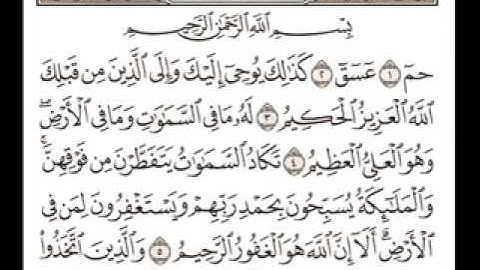 بِسْمِ ٱللَّهِ ٱلرَّحْمَٰنِ ٱلرَّحِيمِ
حمٓ ١ عٓسٓقٓ ٢ كَذَٰلِكَ يُوحِىٓ إِلَيْكَ وَإِلَى ٱلَّذِينَ مِن قَبْلِكَ
ٱللَّهُ ٱلْعَزِيزُ ٱلْحَكِيمُ ٣ لَهُۥ مَا فِى ٱلسَّمَٰوَٰتِ وَمَا فِى ٱلْأَرْضِ ۖ
وَهُوَ ٱلْعَلِىُّ ٱلْعَظِيمُ ٤ تَكَادُ ٱلسَّمَٰوَٰتُ يَتَفَطَّرْنَ مِن فَوْقِهِنَّ ۚ
وَٱلْمَلَٰٓئِكَةُ يُسَبِّحُونَ بِحَمْدِ رَبِّهِمْ وَيَسْتَغْفِرُونَ لِمَن فِى
ٱلْأَرْضِ ۗ أَلَآ إِنَّ ٱللَّهَ هُوَ ٱلْغَفُورُ ٱلرَّحِيمُ ٥ وَٱلَّذِينَ ٱتَّخَذُوا۟